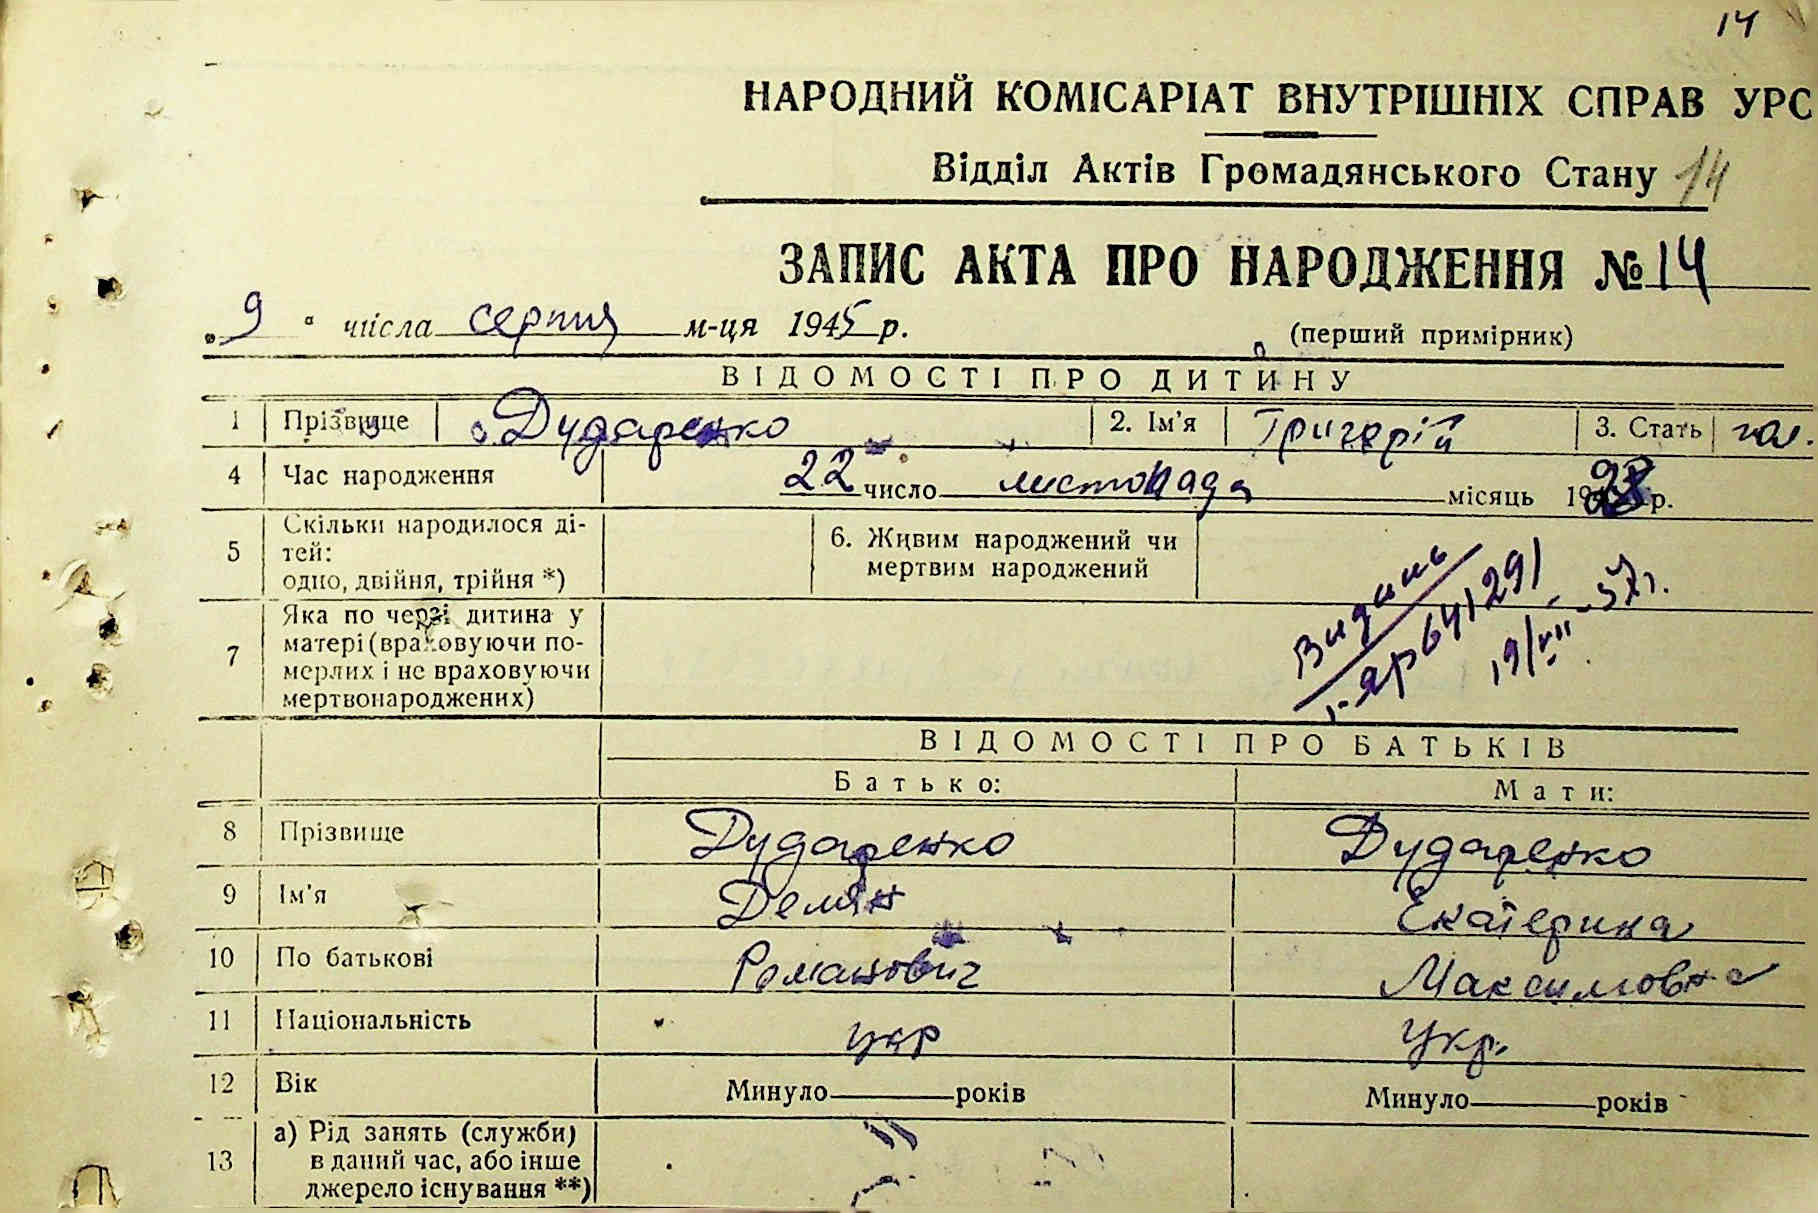 14
НАРОДНИЙ КОМІСАРІАТ ВНУТРІШНІХ СПРАВ УРС
Відділ Актів Громадянського Стану 14
ЗАПИС АКТА ПРО НАРОДЖЕННЯ № 14
„9“ числа серпня м-ця 1945 р. (перший примірник)
ВІДОМОСТІ ПРО ДИТИНУ
1 Прізвище Дударенко 2. Ім'я Григорій 3. Стать чол.
4 Час народження 22 число листопада місяць 19 р.
5 Скільки народилося ді-
тей:
одно, двійня, трійня *)
6. Живим народжений чи
мертвим народжений
7 Яка по черзі дитина у
матері (враховуючи по-
мерлих і не враховуючи
мертвонароджених)
641291
ВІДОМОСТІ ПРО БАТЬКІВ
Батько: Мати:
8 Прізвище Дударенко Дударенко
9 Ім'я Демян Екатерина
10 По батькові Романович Максимовна
11 Національність укр Укр.
12 Вік Минуло років Минуло років
13 а) Рід занять (служби)
в даний час, або інше
джерело існування **)